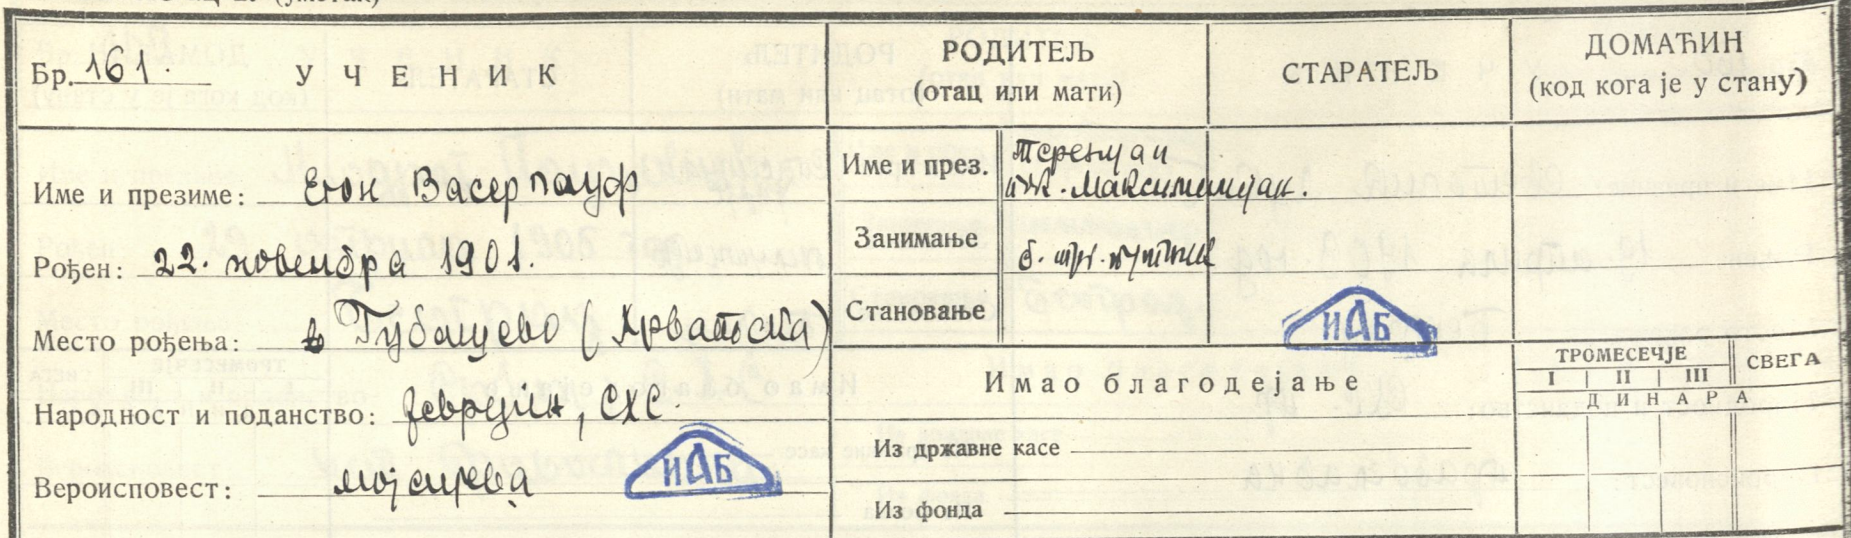 Бр. 161.
УЧЕНИК
РОДИТЕЉ
(отац или мати)
СТАРАТЕЉ
ДОМАЋИН
(код кога је у стану)
Име и презиме: Егон Васерпауф
Рођен: 22. новембра 1901.
Место рођења: Губашево (Хрватска)
Народност и поданство: Јеврејин, СХС.
Вероисповест: мојсијева
ИАБ
Име и през.
Максимилијан.
Занимање
б. трг. путник
Становање
ИАБ
Имао благодејање
ТРОМЕСЕЧЈЕ
I II III
СВЕГА
ДИНАРА
Из државне касе
Из фонда